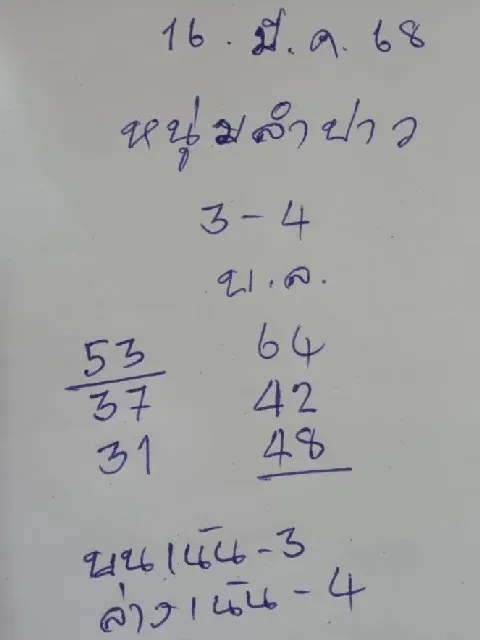 16 . มี. ค. 68
หนุ่มลำปาว
3 - 4
บ. ล.
53 64
37 42
31 48
บนเน้น - 3
ล่างเน้น - 4